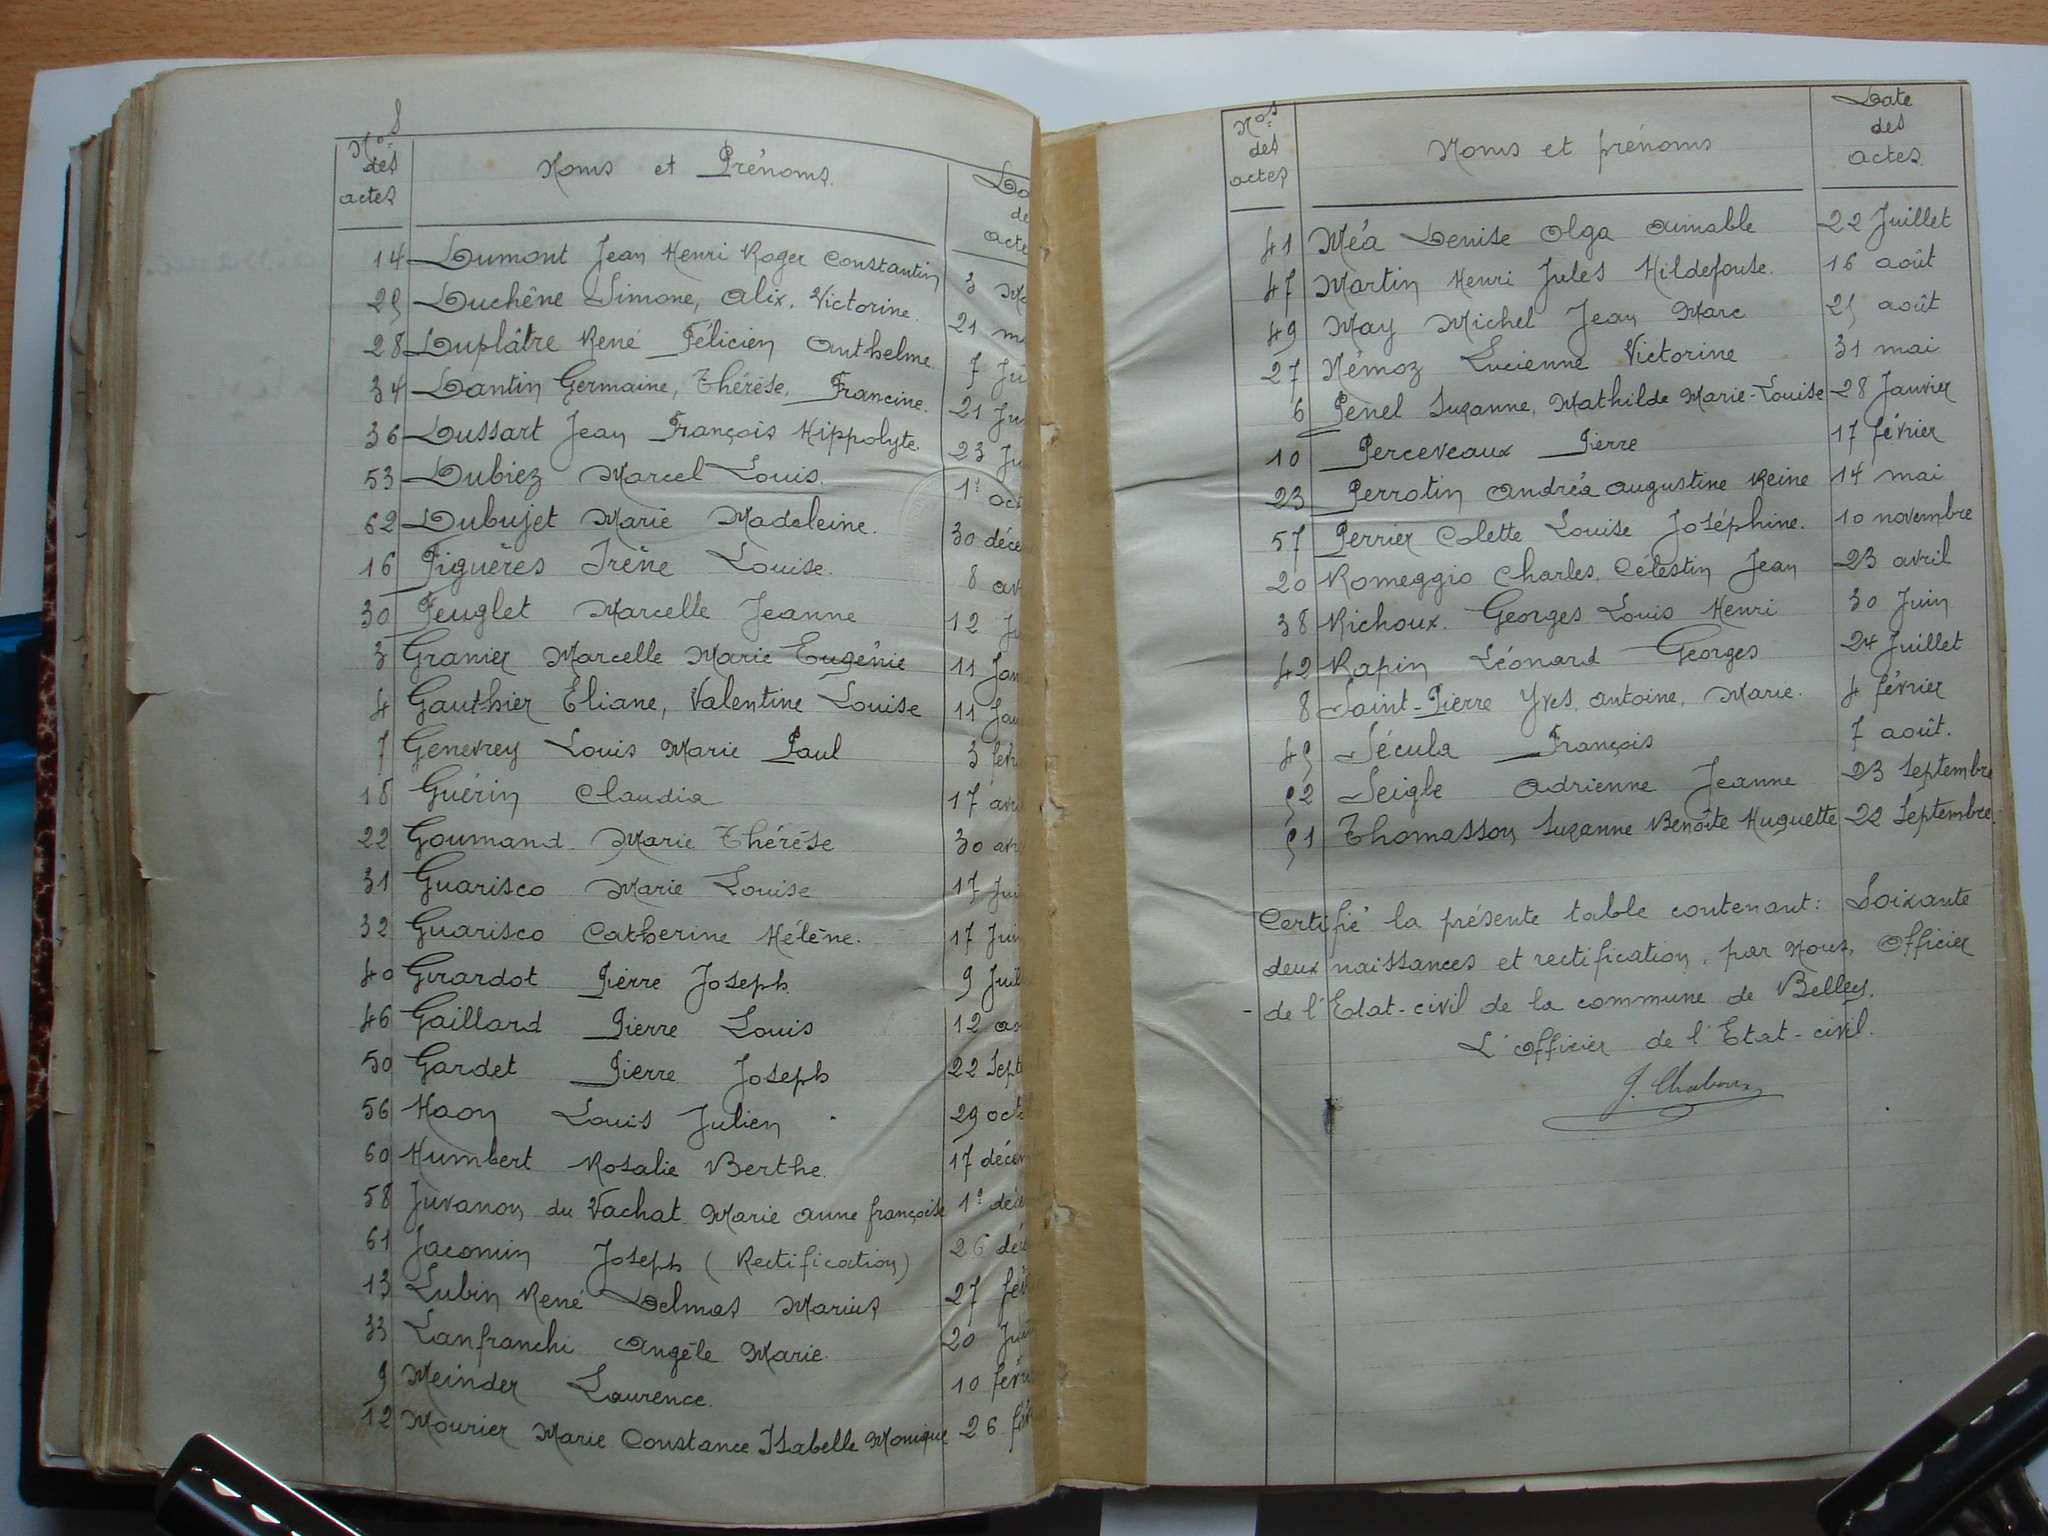 8
Nos
des
actes
Noms et Prénoms.
Da
de
acte
14 Dumont Jean Henri Roger Constantin 3 Ma
25 Duchêne Simone, Alix, Victorine. 21 ma
28 Duplâtre René Félicien Anthelme. 7 Ju
34 Dantin Germaine, Thérèse, Francine. 21 Jui
36 Dussart Jean François Hippolyte. 23 Ju
53 Dubiez Marcel Louis. 1er oct
62 Dubujet Marie Madeleine. 30 décem
16 Figuères Irène Louise. 8 avr
30 Feuglet Marcelle Jeanne 12 Ju
3 Granier Marcelle Marie Eugénie 11 Jan
4 Gauthier Eliane, Valentine Louise 11 Jan
7 Genevrey Louis Marie Paul 3 févr
18 Guérin Claudia 17 avr
22 Goumand Marie Thérèse 30 avr
31 Guarisco Marie Louise 17 Jui
32 Guarisco Catherine Hélène. 17 Juin
40 Girardot Pierre Joseph 9 Juil
46 Gaillard Pierre Louis 12 ao
50 Gardet Pierre Joseph 22 Sept
56 Haon Louis Julien 29 octo
60 Humbert Rosalie Berthe. 17 décem
58 Juvanon du Vachat Marie Anne françoise 1er déce
61 Jacomin Joseph (Rectification) 26 déc
13 Lubin René Delmas Marius 27 fév
33 Lanfranchi Angèle Marie. 20 Jui
9 Meinder Laurence. 10 févr
12 Mourier Marie Constance Isabelle Monique 26 fév
Nos
des
actes
Noms et prénoms
Date
des
actes.
41 Méa Denise Olga Aimable 22 Juillet
47 Martin Henri Jules Hildefonse. 16 août
49 May Michel Jean Marc 25 août
27 Némoz Lucienne Victorine 31 mai
6 Penel Suzanne, Mathilde Marie-Louise 28 Janvier
10 Perceveaux Pierre 17 février
23 Perrotin Andréa Augustine Reine 14 mai
57 Perrier Colette Louise Joséphine. 10 novembre
20 Romeggio Charles, Célestin Jean 23 avril
38 Richoux. Georges Louis Henri 30 Juin
42 Rapin Léonard Georges 24 Juillet
8 Saint-Pierre Yves, Antoine, Marie. 4 février
45 Sécula François 7 août.
52 Seigle Adrienne Jeanne 23 Septembre
51 Thomasson Suzanne Benoîte Huguette 22 Septembre.
Certifié la présente table contenant: Soixante
deux naissances et rectification, par Nous, Officier
de l'Etat-civil de la commune de Belley.
L'officier de l'Etat-civil.